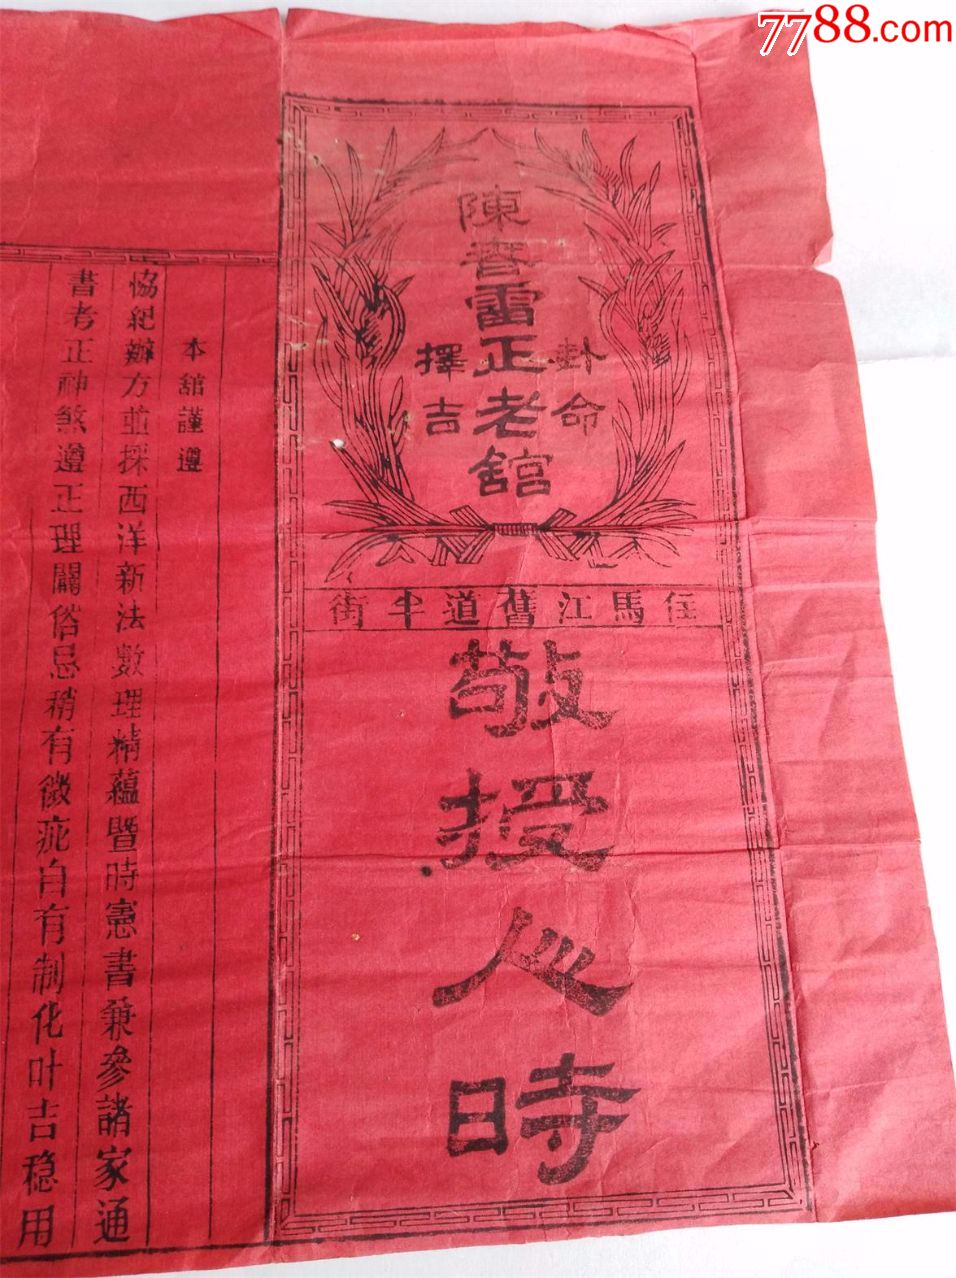 7788.com
陳春雷正老舘
卦命
擇吉
住馬江舊道半街
敬授人時
本舘謹遵
協紀辦方並採西洋新法數理精蘊暨時憲書兼參諸家通
書考正神煞遵正理闢俗忌稍有微疵自有制化叶吉穏用